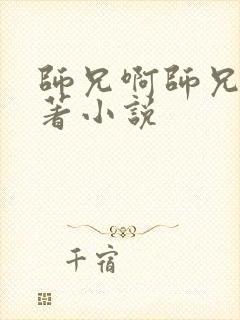 師兄啊師兄
著小說
千宿